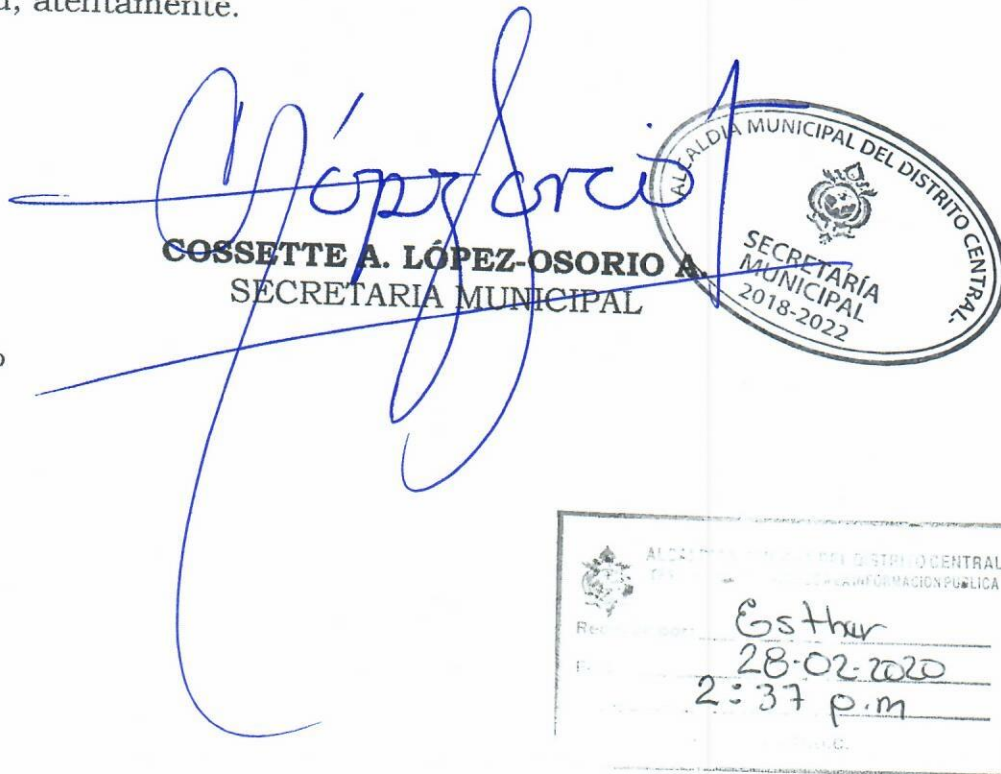 atentamente.
López Osorio
COSSETTE A. LÓPEZ-OSORIO A.
SECRETARIA MUNICIPAL
ALCALDIA MUNICIPAL DEL DISTRITO CENTRAL-
SECRETARÍA
MUNICIPAL
2018-2022
DEL DISTRITO CENTRAL
INFORMACION PUBLICA
Esther
28-02-2020
2:37 p.m